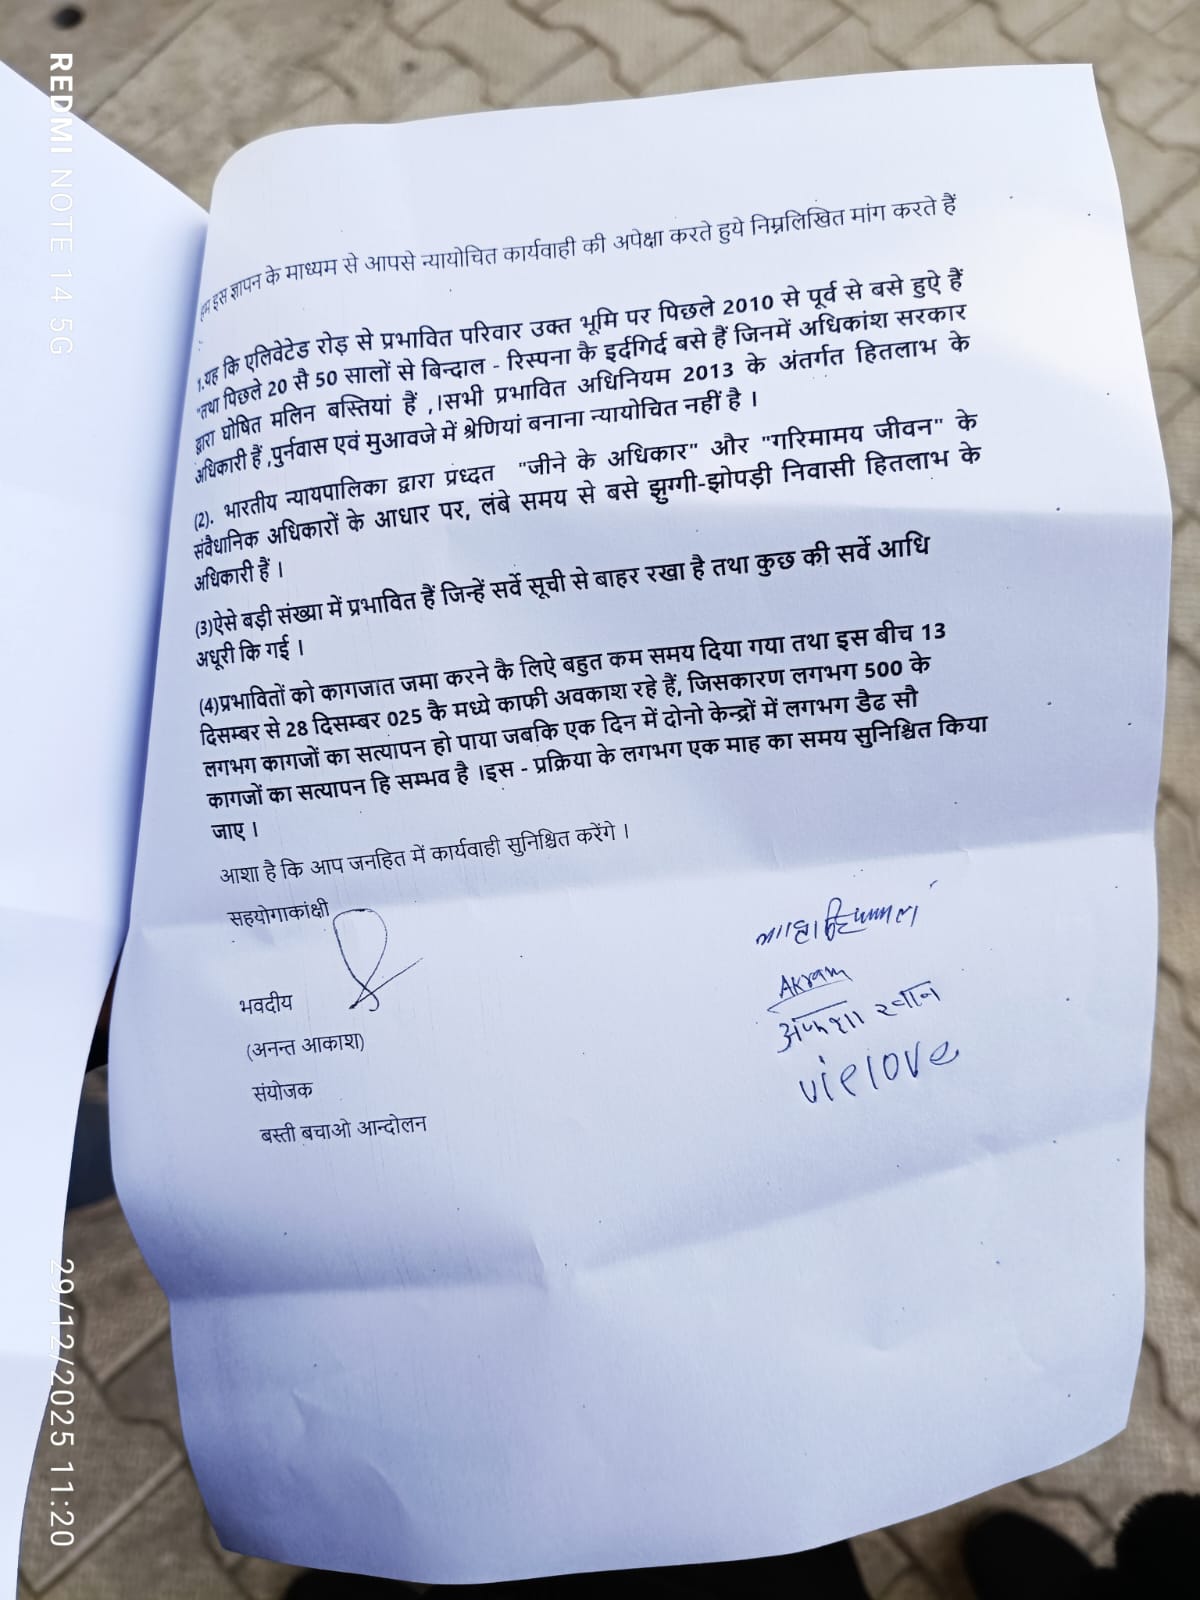 हम इस ज्ञापन के माध्यम से आपसे न्यायोचित कार्यवाही की अपेक्षा करते हुये निम्नलिखित मांग करते हैं
1.यह कि एलिवेटेड रोड़ से प्रभावित परिवार उक्त भूमि पर पिछले 2010 से पूर्व से बसे हुऐ हैं
"तथा पिछले 20 सै 50 सालों से बिन्दाल - रिस्पना कै इर्दगिर्द बसे हैं जिनमें अधिकांश सरकार
द्वारा घोषित मलिन बस्तियां हैं ,।सभी प्रभावित अधिनियम 2013 के अंतर्गत हितलाभ के
अधिकारी हैं ,पुर्नवास एवं मुआवजे में श्रेणियां बनाना न्यायोचित नहीं है ।
(2). भारतीय न्यायपालिका द्वारा प्रध्दत "जीने के अधिकार" और "गरिमामय जीवन" के
संवैधानिक अधिकारों के आधार पर, लंबे समय से बसे झुग्गी-झोपड़ी निवासी हितलाभ के
अधिकारी हैं ।
(3)ऐसे बड़ी संख्या में प्रभावित हैं जिन्हें सर्वे सूची से बाहर रखा है तथा कुछ की सर्वे आधि
अधूरी कि गई ।
(4)प्रभावितों को कागजात जमा करने कै लिऐ बहुत कम समय दिया गया तथा इस बीच 13
दिसम्बर से 28 दिसम्बर 025 कै मध्ये काफी अवकाश रहे हैं, जिसकारण लगभग 500 के
लगभग कागजों का सत्यापन हो पाया जबकि एक दिन में दोनो केन्द्रों में लगभग डैढ सौ
कागजों का सत्यापन हि सम्भव है ।इस - प्रक्रिया के लगभग एक माह का समय सुनिश्चित किया
जाए ।
आशा है कि आप जनहित में कार्यवाही सुनिश्चित करेंगे ।
सहयोगाकांक्षी
भवदीय
(अनन्त आकाश)
संयोजक
बस्ती बचाओ आन्दोलन
Akram
खान
REDMI NOTE 14 5G
29/12/2025 11:20